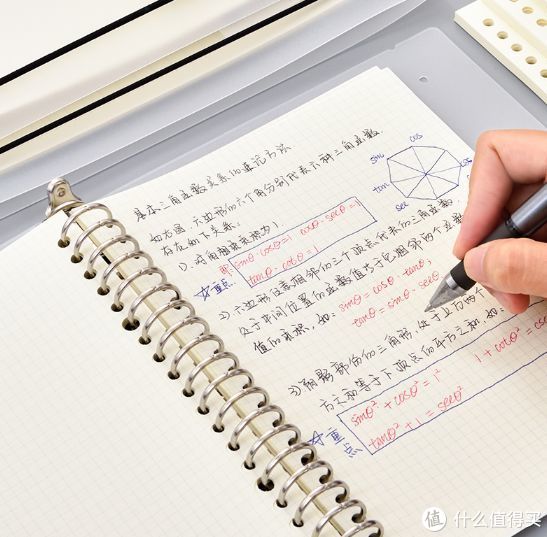 基本三角函数关系的速记方法
如右图,六边形的六个角分别代表六种三角函数.
存在如下关系:
1). 对角相乘乘积为1.
即 sinθ·cosθ=1 cosθ·secθ=1
tanθ·cotθ=1
☆重点
2). 六边形任意相邻的三个顶点代表的三角函数,
处于中间位置的函数值等于它相邻两个函数
值的乘积, 如: sinθ=cosθ·tanθ;
tanθ=sinθ·secθ
3) 阴影部份的三角形, 处于上方两个
方之和等于下顶点的平方之和, 如:
sinθ²+cosθ²=1² 1+cotθ²=
tanθ²+1=secθ²
☆重点
cos
sin
tan
sec
值 什么值得买